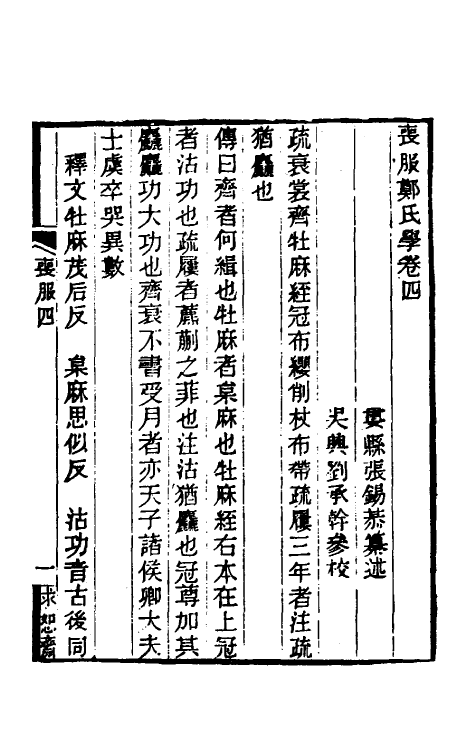 喪服鄭氏學卷四
婁縣張錫恭纂述
吳興劉承幹參校
疏衰裳齊牡麻絰冠布纓削杖布帶疏屨三年者注疏
猶麤也
傳曰齊者何緝也牡麻者枲麻也牡麻絰右本在上冠
者沽功也疏屨者藨蒯之菲也注沽猶麤也冠尊加其
麤麤功大功也齊衰不書受月者亦天子諸侯卿大夫
士虞卒哭異數
釋文牡麻茂后反　枲麻思似反　沽功音古後同
喪服四
一
求恕齋